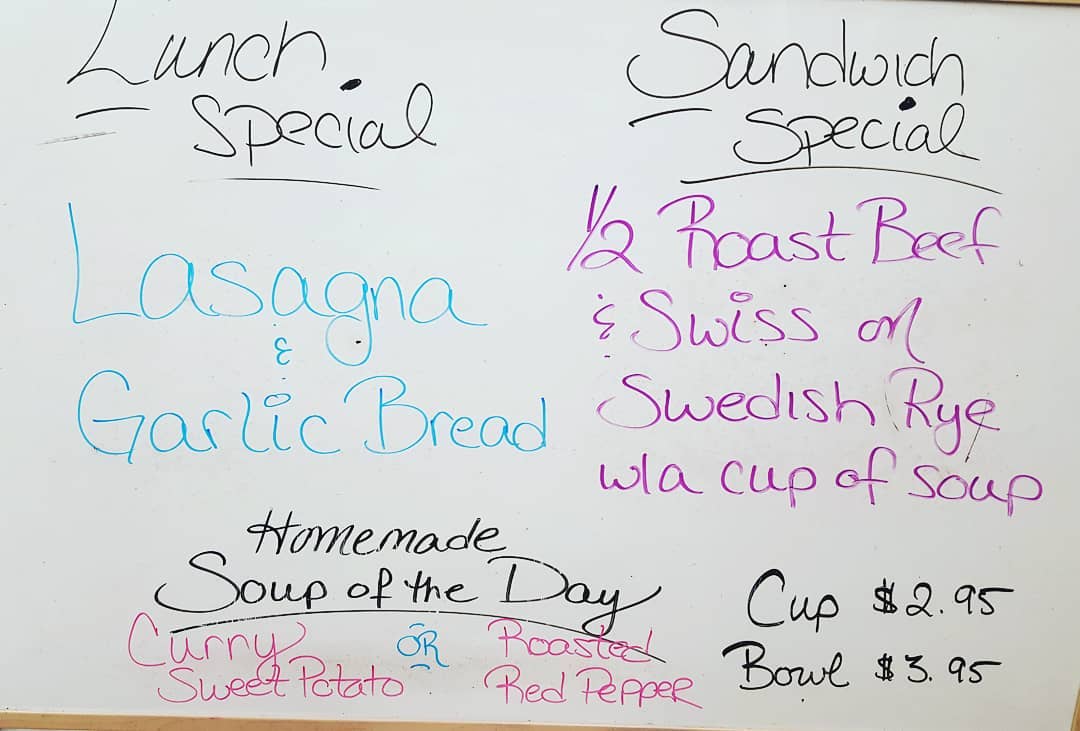 Lunch
Special
Lasagna
&
Garlic Bread
Sandwich
Special
1/2 Roast Beef
& Swiss on
Swedish Rye
w/a cup of soup
Homemade
Soup of the Day
Curry
Sweet Potato
OR
Roasted
Red Pepper
Cup $2.95
Bowl $3.95